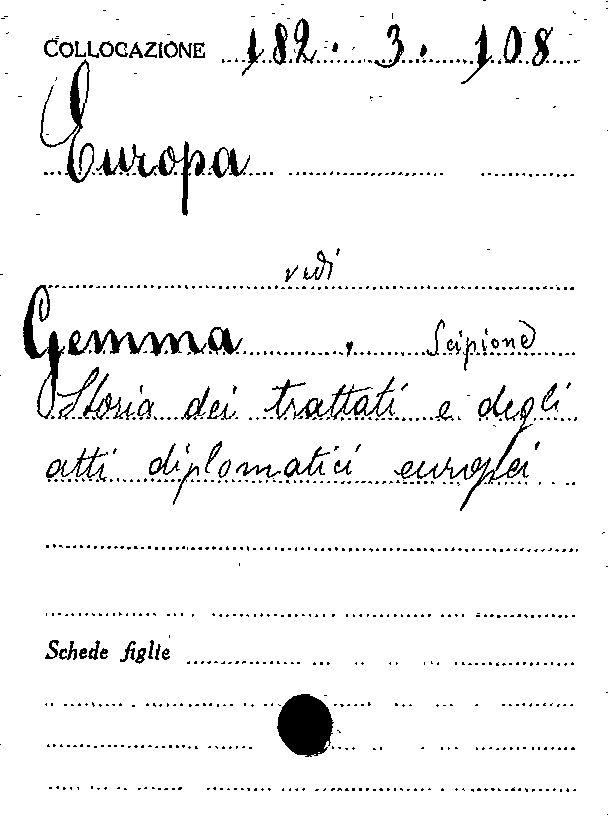 COLLOCAZIONE 182. 3. 108
Europa
vedi
Gemma, Scipione
Storia dei trattati e degli
atti diplomatici europei
Schede figlie